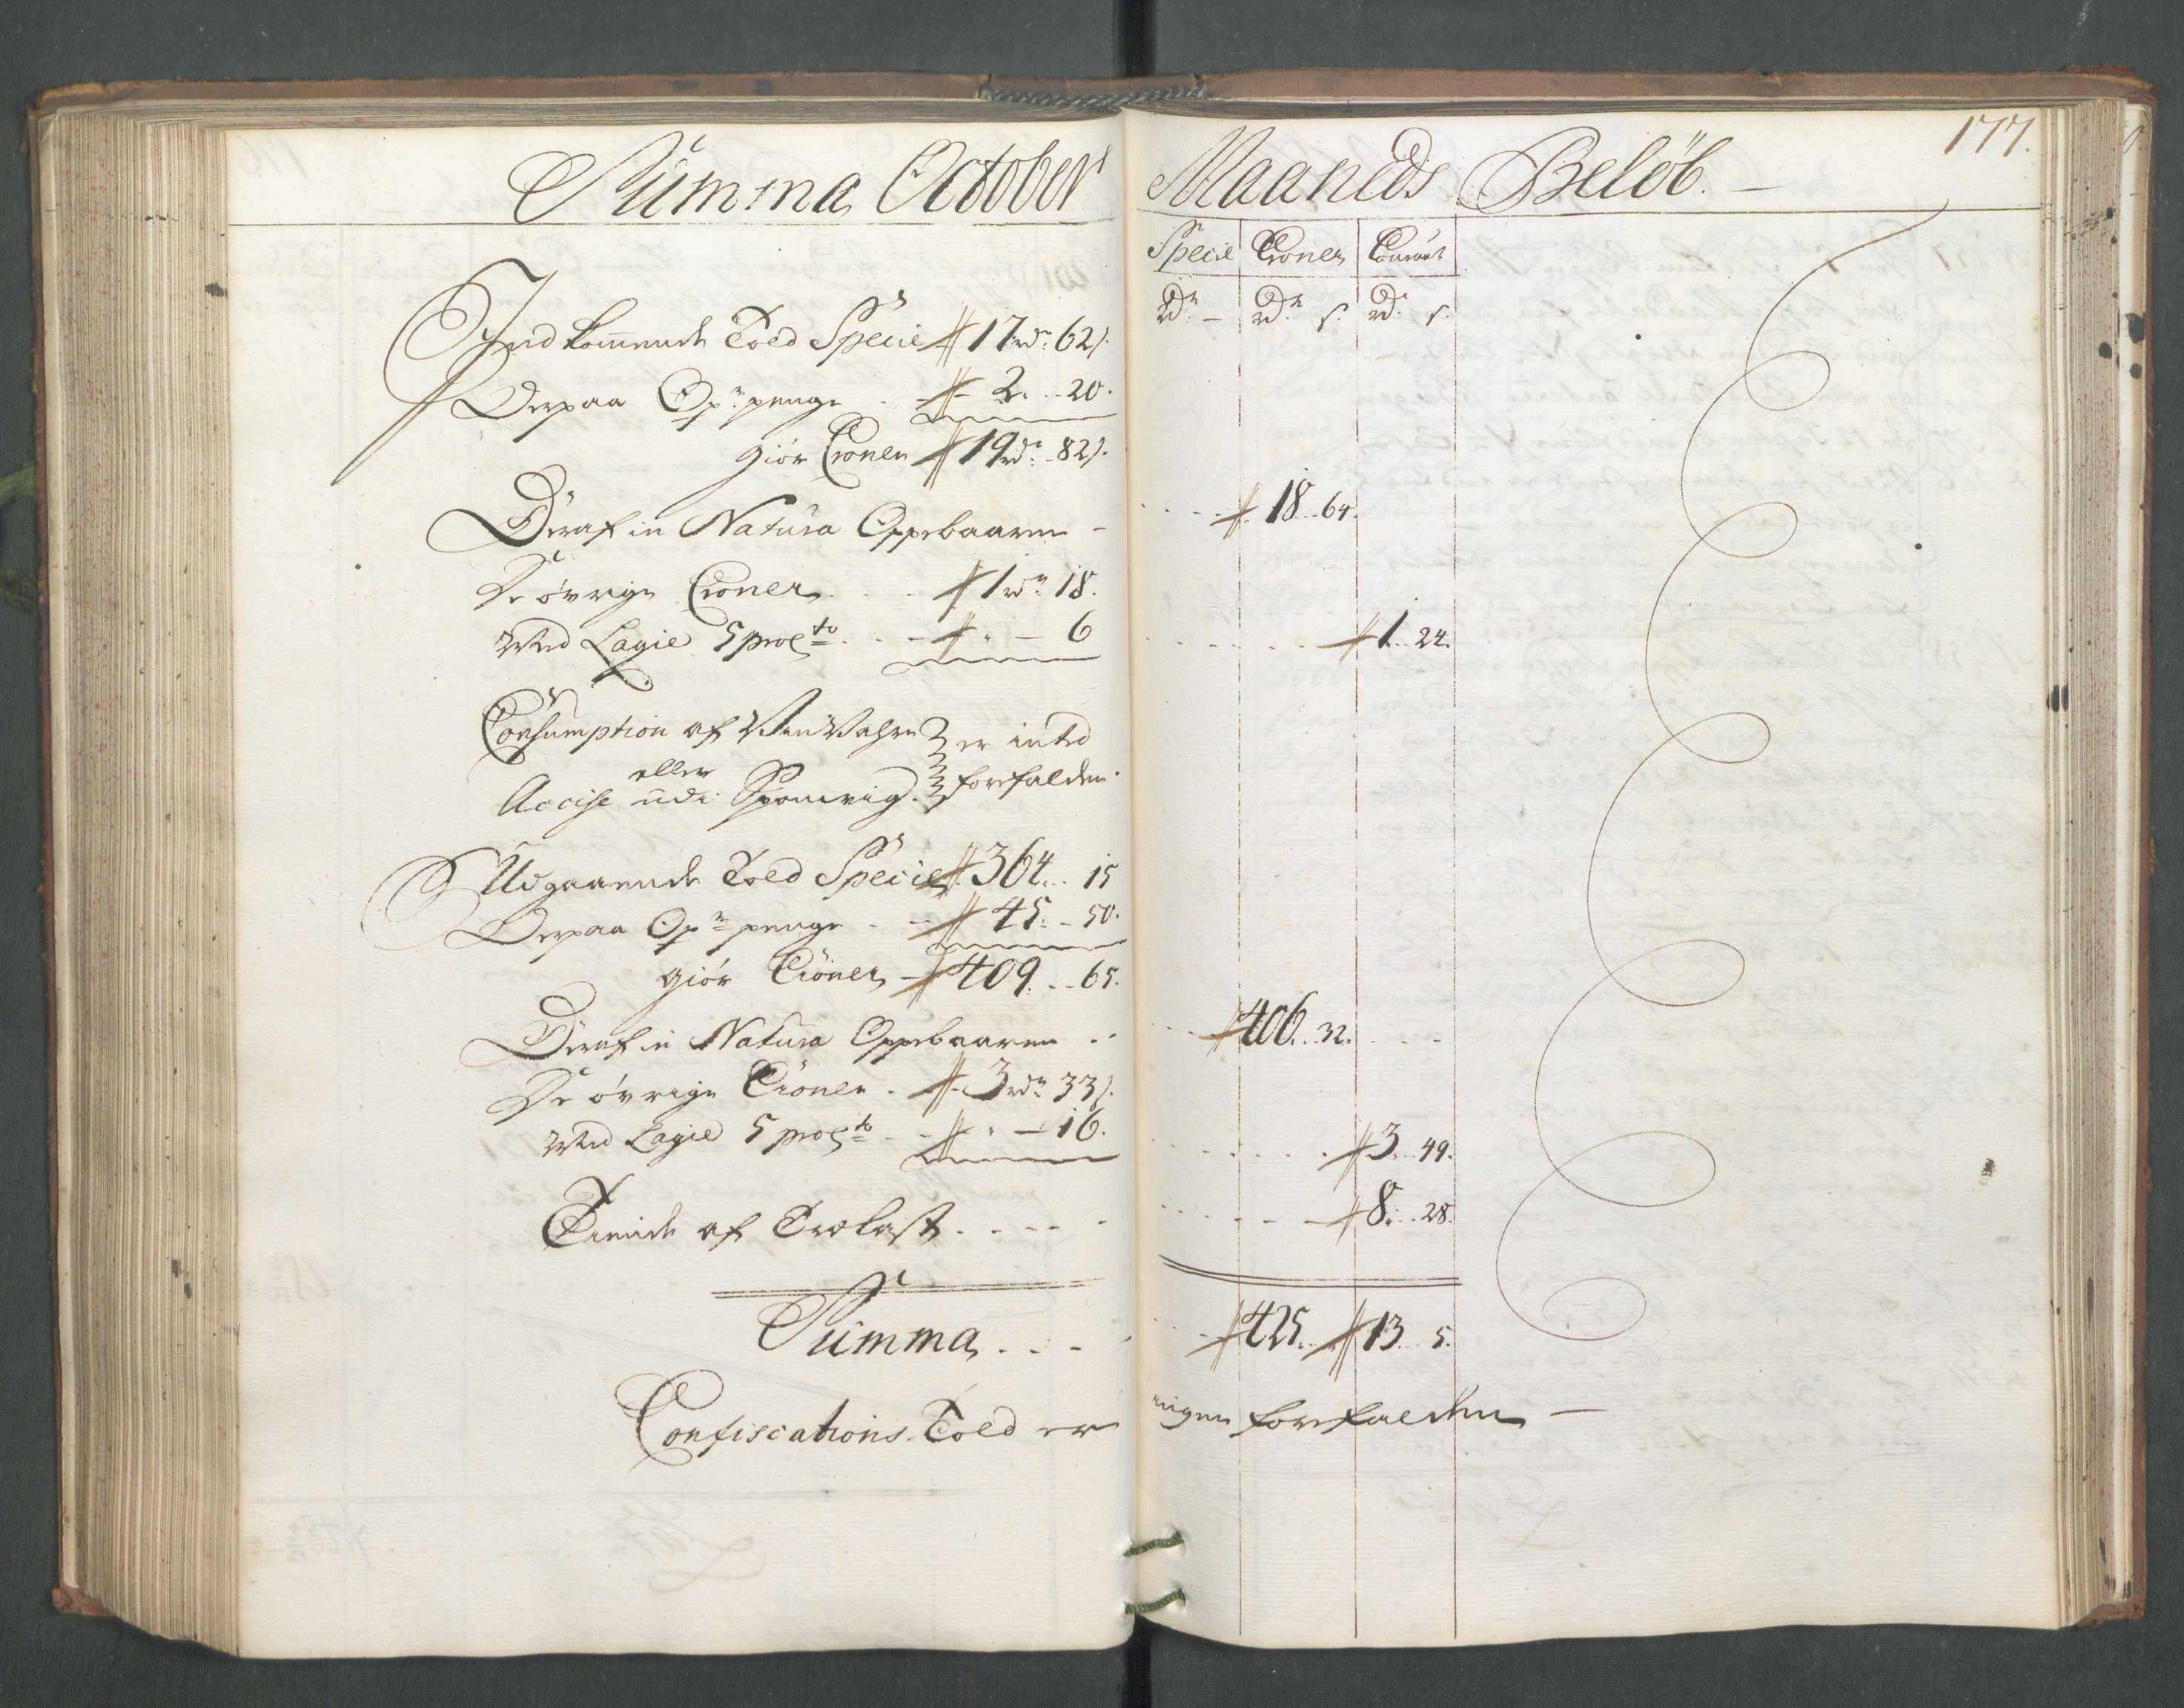 177.
Summa October Maaneds Beløb. –
Specie Croner Courant
rdr – rdr s. rd. s.
Indkommende Told Specie 17 rdr 62 s.
Derpaa Opr penge . 2. .. 20.
giör Croner 19 rdr 82 s.
Deraf in Natura Oppebaaren – 18 .. 64.
De øvrige Croner . . 1 rdr 18.
Med Lagie 5 proCto . . – „ – 6 1 .. 24.
Consumption af Viin Vahre er inted
eller
Accise udi forefalden.
Udgaaende Told Specie 364 .. 15
Derpaa Opr penge . . 45. – 50.
giör Croner – 409. .. 65.
Deraf in Natura Oppebaaren . . 406 .. 32.
De øvrige Croner . 3 rdr 33 s.
Med Lagie 5 proCto . – „ – 16. 3 .. 49.
Tiende af Trælast . . – – 8. .. 28.
Summa . . – 425. .. 13 .. 5.
Confiscations Told er ingen forefalden –